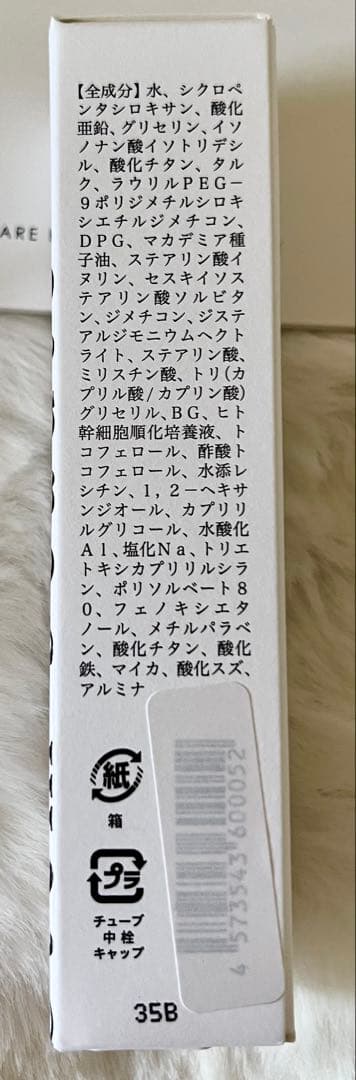 【全成分】水、シクロペ
ンタシロキサン、酸化
亜鉛、グリセリン、イソ
ノナン酸イソトリデシ
ル、酸化チタン、タル
ク、ラウリルPEG－
9ポリジメチルシロキ
シエチルジメチコン、
DPG、マカデミア種
子油、ステアリン酸イ
ヌリン、セスキイソス
テアリン酸ソルビタ
ン、ジメチコン、ジステ
アルジモニウムヘクト
ライト、ステアリン酸、
ミリスチン酸、トリ(カ
プリル酸/カプリン酸)
グリセリル、BG、ヒト
幹細胞順化培養液、ト
コフェロール、酢酸ト
コフェロール、水添レ
シチン、1，2－ヘキサ
ンジオール、カプリリ
ルグリコール、水酸化
Al、塩化Na、トリエ
トキシカプリリルシラ
ン、ポリソルベート8
0、フェノキシエタ
ノール、メチルパラベ
ン、酸化チタン、酸化
鉄、マイカ、酸化スズ、
アルミナ
紙
箱
プラ
チューブ
中栓
キャップ
35B
4 573543 600052
ARE